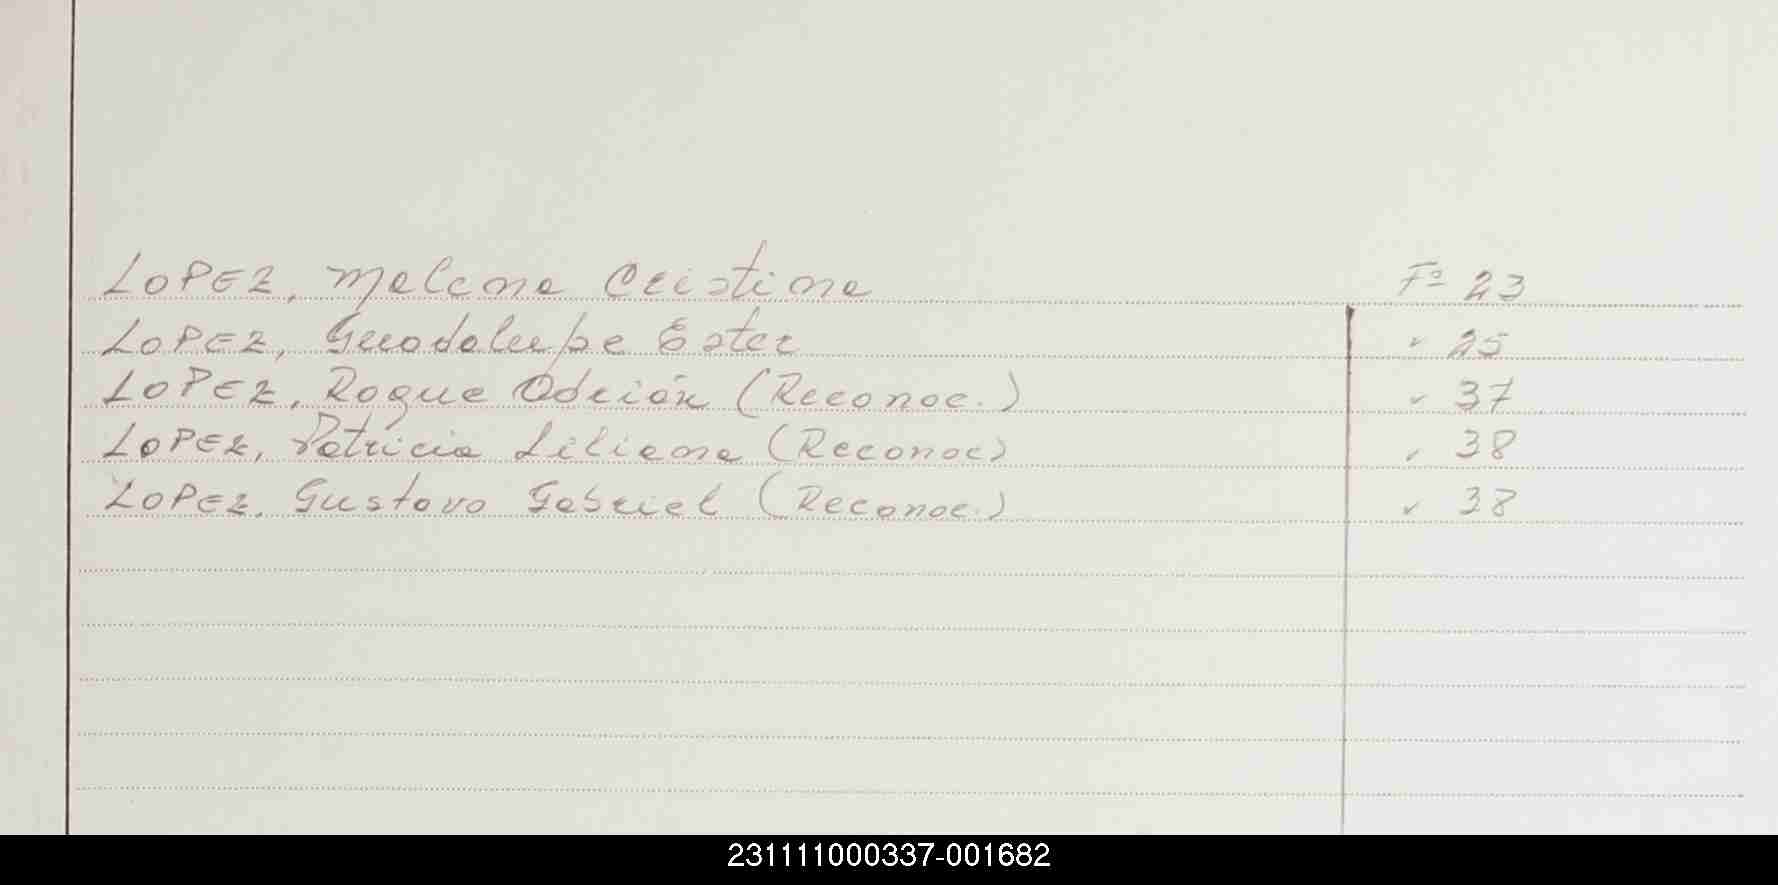 LOPEZ, Malena Cristina Fº 23
LOPEZ, Guadalupe Ester " 25
LOPEZ, Roque Adrián (Reconoc.) " 37
LOPEZ, Patricia Liliana (Reconoc) " 38
LOPEZ, Gustavo Gabriel (Reconoc.) " 38
231111000337-001682